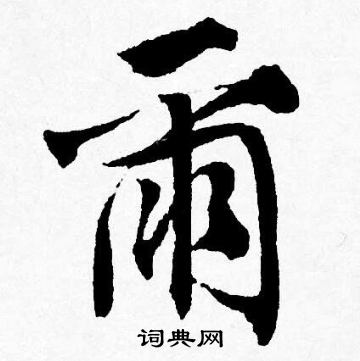 爾
词典网